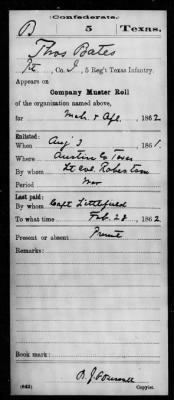 Confederate.
B 5 Texas.
Thos Bates
Pt, Co. I, 5 Reg't Texas Infantry.
Appears on
Company Muster Roll
of the organization named above,
for Mch. & Apl., 1862
Enlisted:
When Aug 3, 1861.
Where Austin Co Texas
By whom Lt Col. Robertson
Period War
Last paid:
By whom Capt Littlefield
To what time Feb. 28, 1862
Present or absent Present
Remarks:
Book mark:
(642) Copyist.